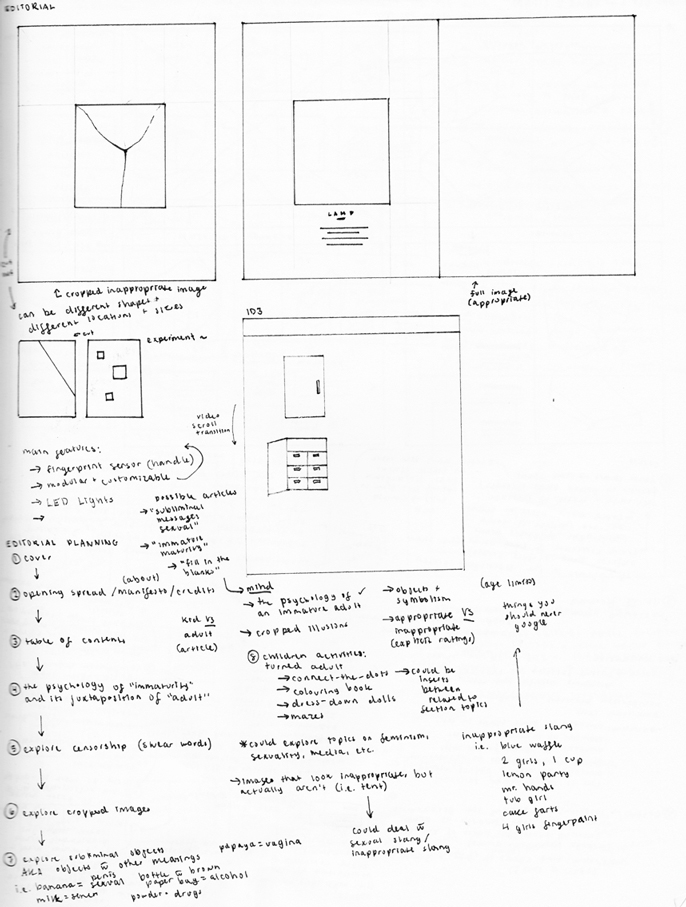 EDITORIAL
LAMP
↑ cropped inappropriate image
can be different shapes +
different locations + sizes
↑ full image
(appropriate)
cut
experiment ~
103
video
scroll
transition
main features:
→ fingerprint sensor (handle)
→ modular + customizable
→ LED Lights
→
possible articles
→ "subliminal
messages
sexual"
→ "immature
maturity"
→ "fill in the
blanks"
EDITORIAL PLANNING
① cover
② opening spread/manifesto/credits
(about)
③ table of contents
kid VS
adult
(article)
④ the psychology of "immaturity"
and its juxtaposition of "adult"
⑤ explore censorship (swear words)
⑥ explore cropped images
⑦ explore subliminal objects
AKA objects w̄ other meanings
papaya = vagina
i.e. banana = penis
sexual
bottle w̄ brown
paper bag = alcohol
milk = semen
powder = drugs
→ mind
→ the psychology of ✓
an immature adult
→ cropped illusions
→ objects +
symbolism
→ appropriate VS
inappropriate
(explicit ratings)
(age limits)
things you
should never
google
⑧ children activities:
turned adult
→ connect-the-dots
→ colouring book
→ dress-down dolls
→ mazes
→ could be
inserts
between
related to
section topics
*could explore topics on feminism,
sexuality, media, etc.
→ images that look inappropriate, but
actually aren't (i.e. tent)
could deal w̄
sexual slang/
inappropriate slang
inappropriate slang
i.e. blue waffle
2 girls, 1 cup
lemon party
mr. hands
tub girl
cake farts
4 girls fingerpaint